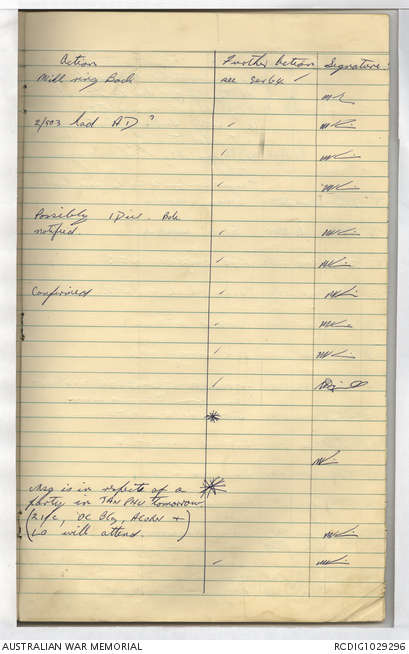 Action Further Action Signature
Will ring Back see Ser 64 ✓
2/503 had AD? ✓
✓
✓
Possibly 1 Div. Bde
notified ✓
✓
Confirmed ✓
✓
✓
Msg is in respects of a
party in TAN PHU tomorrow
(2ic, OC Bty, ACORN +
LO will attend.)
✓
AUSTRALIAN WAR MEMORIAL RCDIG1029296